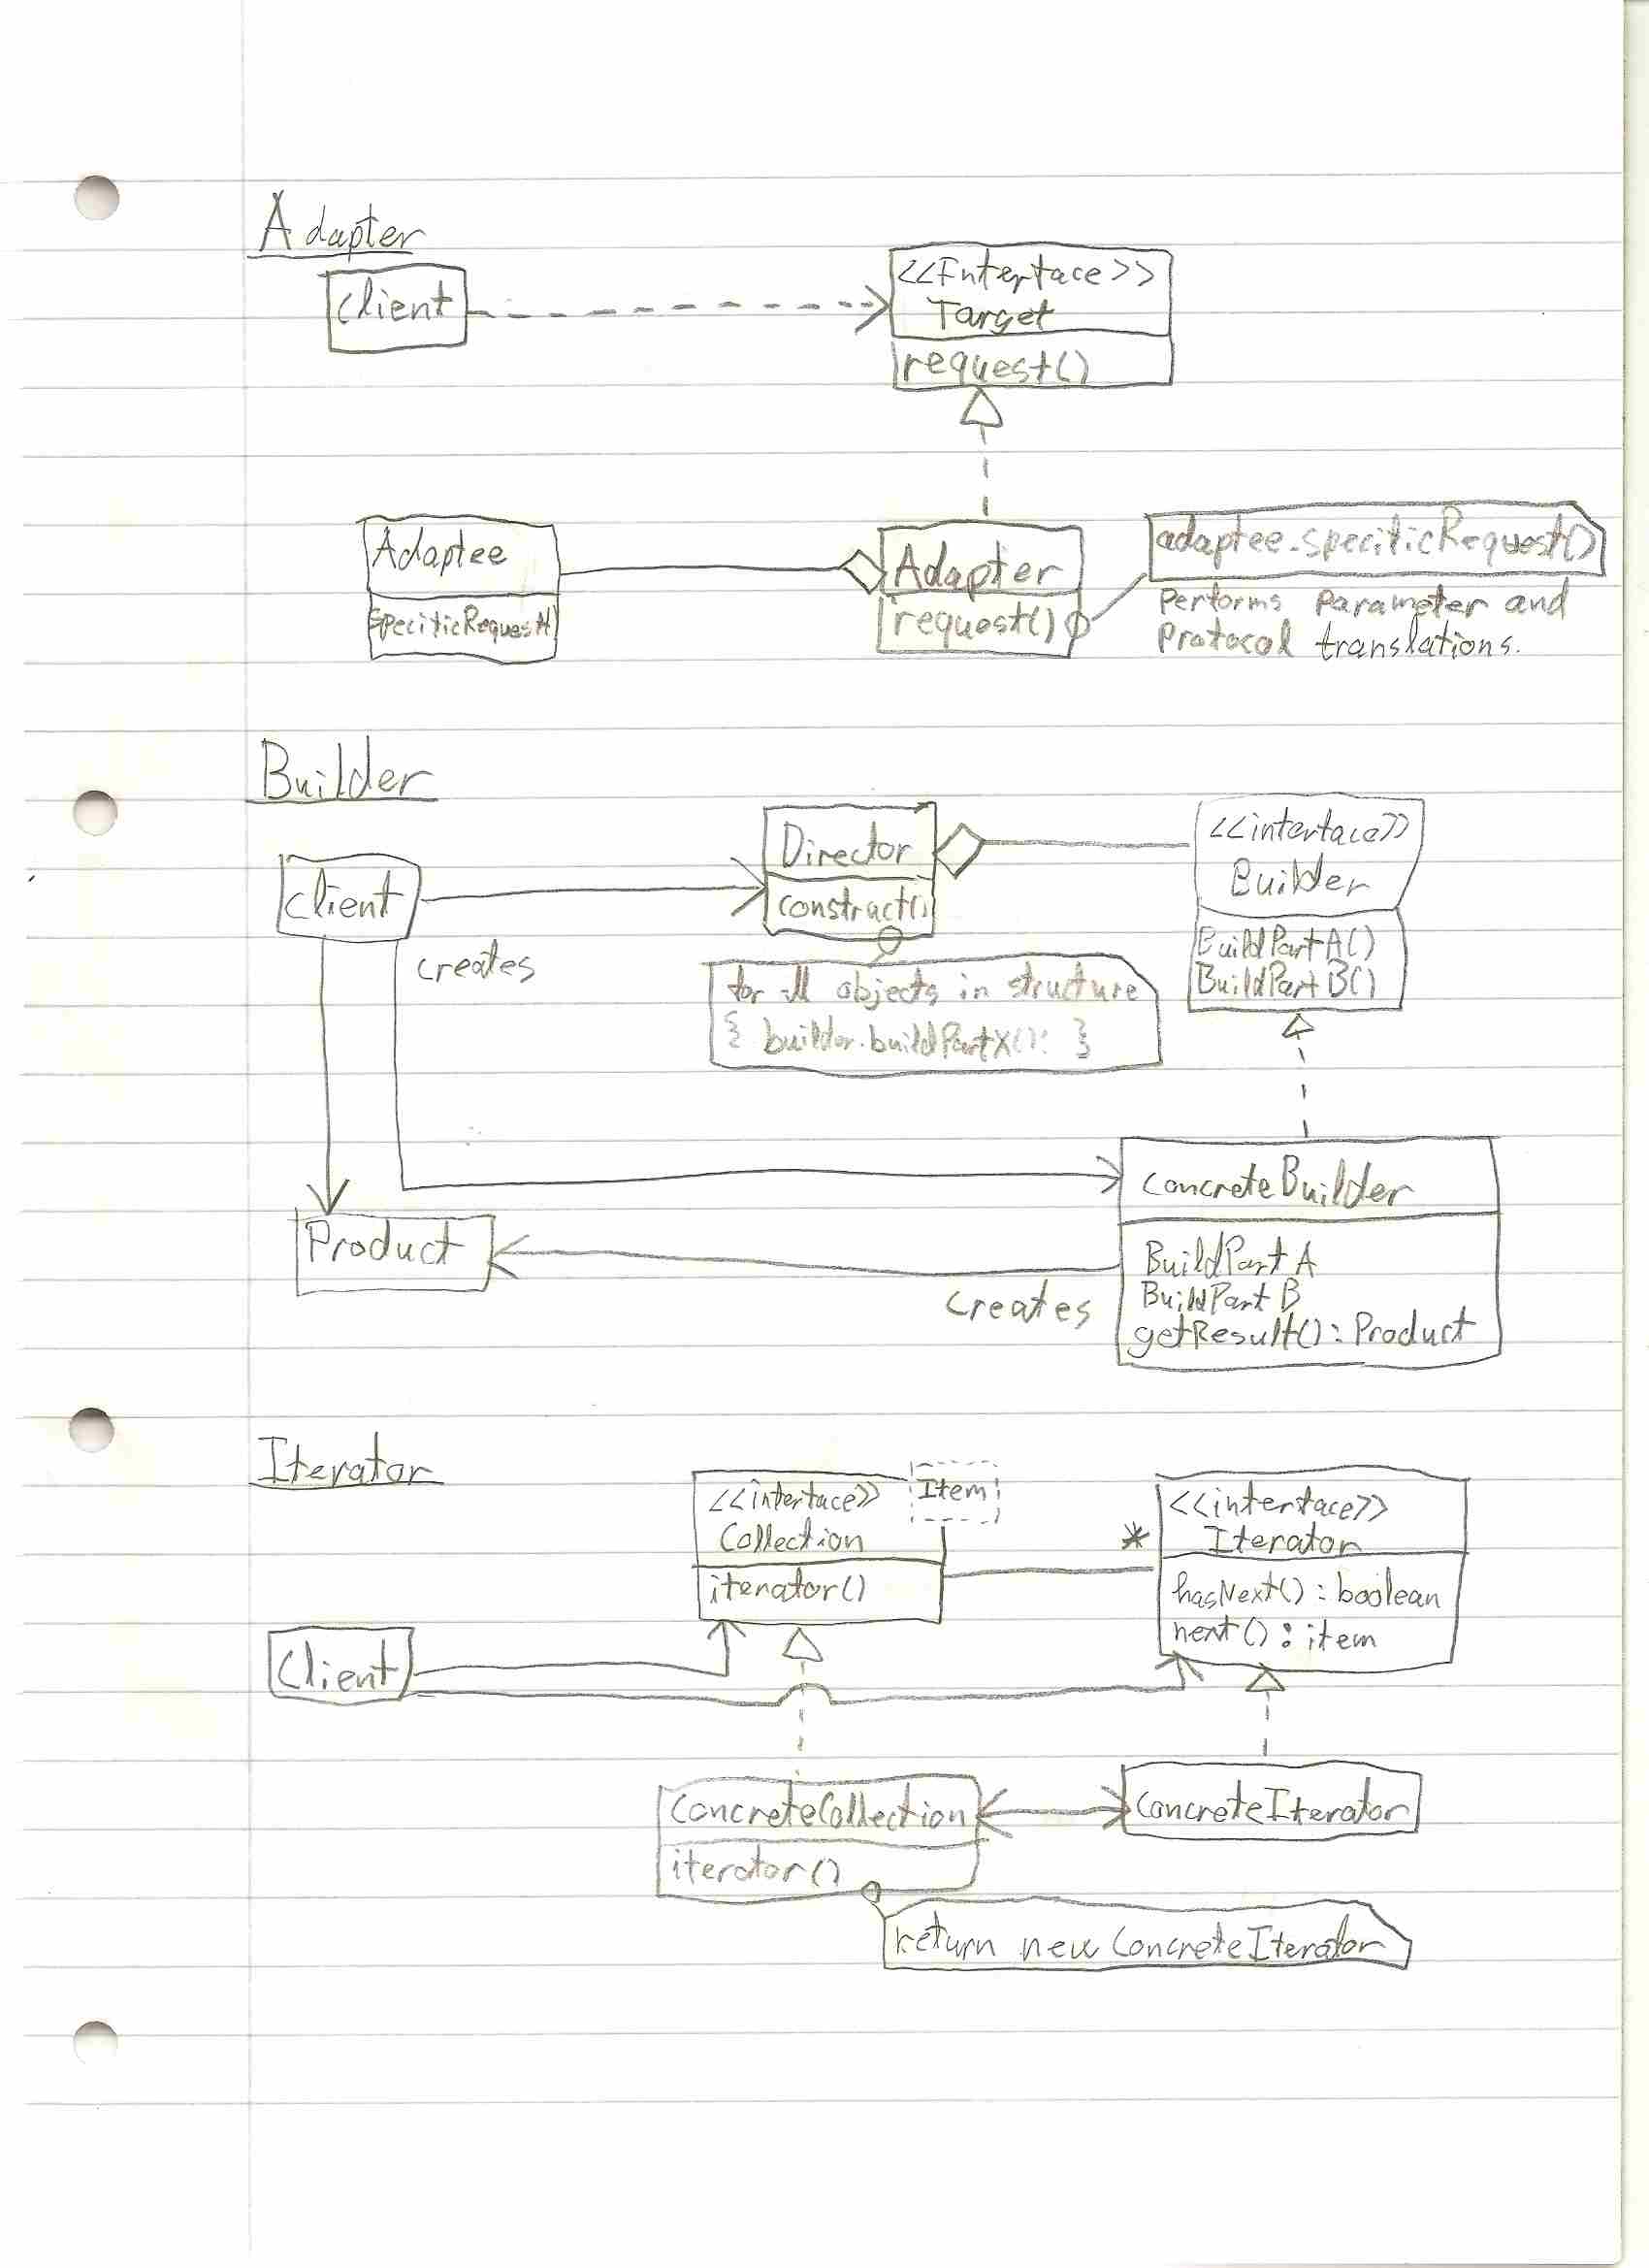 Adapter
Client
<<Interface>>
Target
request()
Adaptee
specificRequest()
Adapter
request()
adaptee.specificRequest()
Performs parameter and
Protocol translations.
Builder
Client
creates
Director
construct()
for all objects in structure
{ builder.buildPartX(); }
<<interface>>
Builder
BuildPartA()
BuildPartB()
Product
creates
ConcreteBuilder
BuildPart A
BuildPart B
getResult(): Product
Iterator
<<interface>>
Collection
Item
iterator()
*
<<interface>>
Iterator
hasNext(): boolean
next(): item
Client
ConcreteCollection
iterator()
ConcreteIterator
return new ConcreteIterator